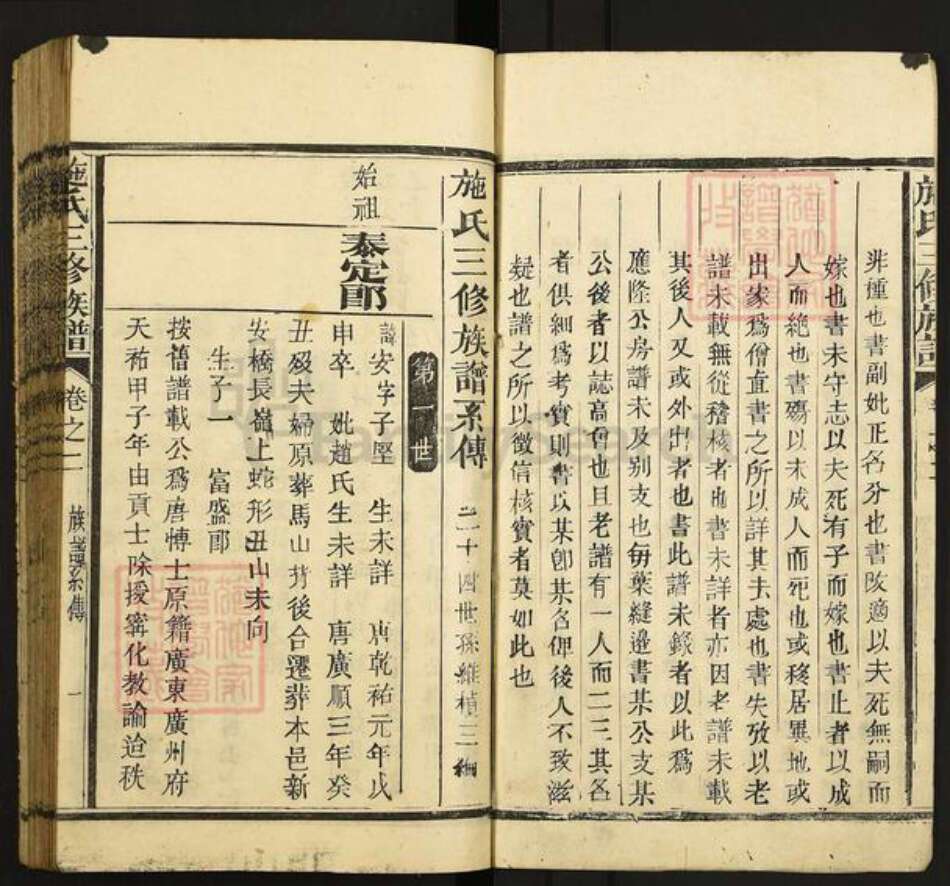 施氏三修族譜
非種也書副妣正名分也書改適以夫死無嗣而
嫁也書未守志以夫死有子而嫁也書止者以成
人而絶也書殤以未成人而死也或移居異地或
出家爲僧直書之所以詳其去處也書失攷以老
譜未載無從稽核者也書未詳者亦因老譜未載
其後人又或外出者也書此譜未錄者以此爲
應隆公房譜未及别支也每葉縫邊書某公支某
公後者以誌高曾也且老譜有一人而二三其名
者俱細爲考實則書以某卽某名俾後人不致滋
疑也譜之所以徵信核實者莫如此也
施氏三修族譜系傳 二十四世孫維楨三編
第一世
始祖
泰定郎
諱安字子堅 生未詳 唐乾祐元年戊
申卒 妣趙氏生未詳 唐廣順三年癸
丑歿夫婦原葬馬山背後合遷葬本邑新
安橋長嶺上蛇形丑山未向
生子一 富盛郎
按舊譜載公爲唐博士原籍廣東廣州府
天祐甲子年由貢士除授寗化教諭迨秩
施氏三修族譜 卷之二 族譜系傳 一